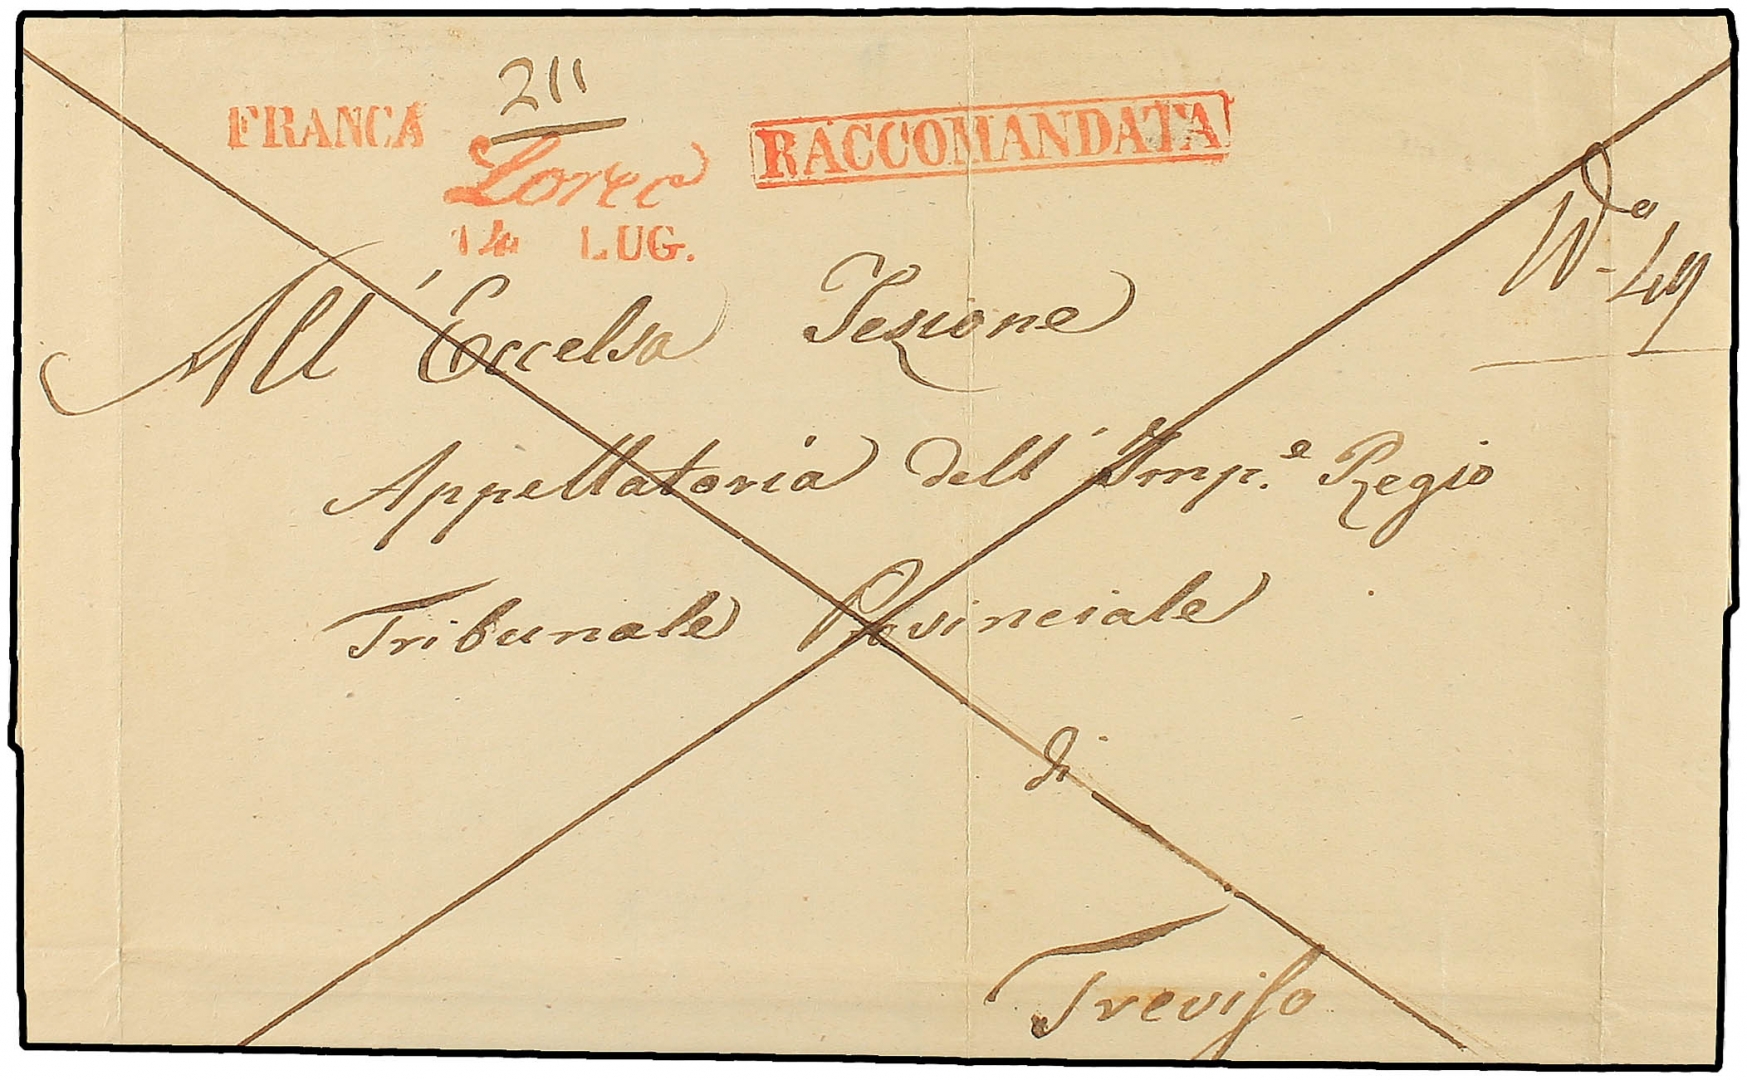 211
FRANCA
RACCOMANDATA
Loreo
14 LUG.
All' Eccelsa Sezione
Appellatoria dell' Imp.e Regio
Tribunale Provinciale
di
Treviso